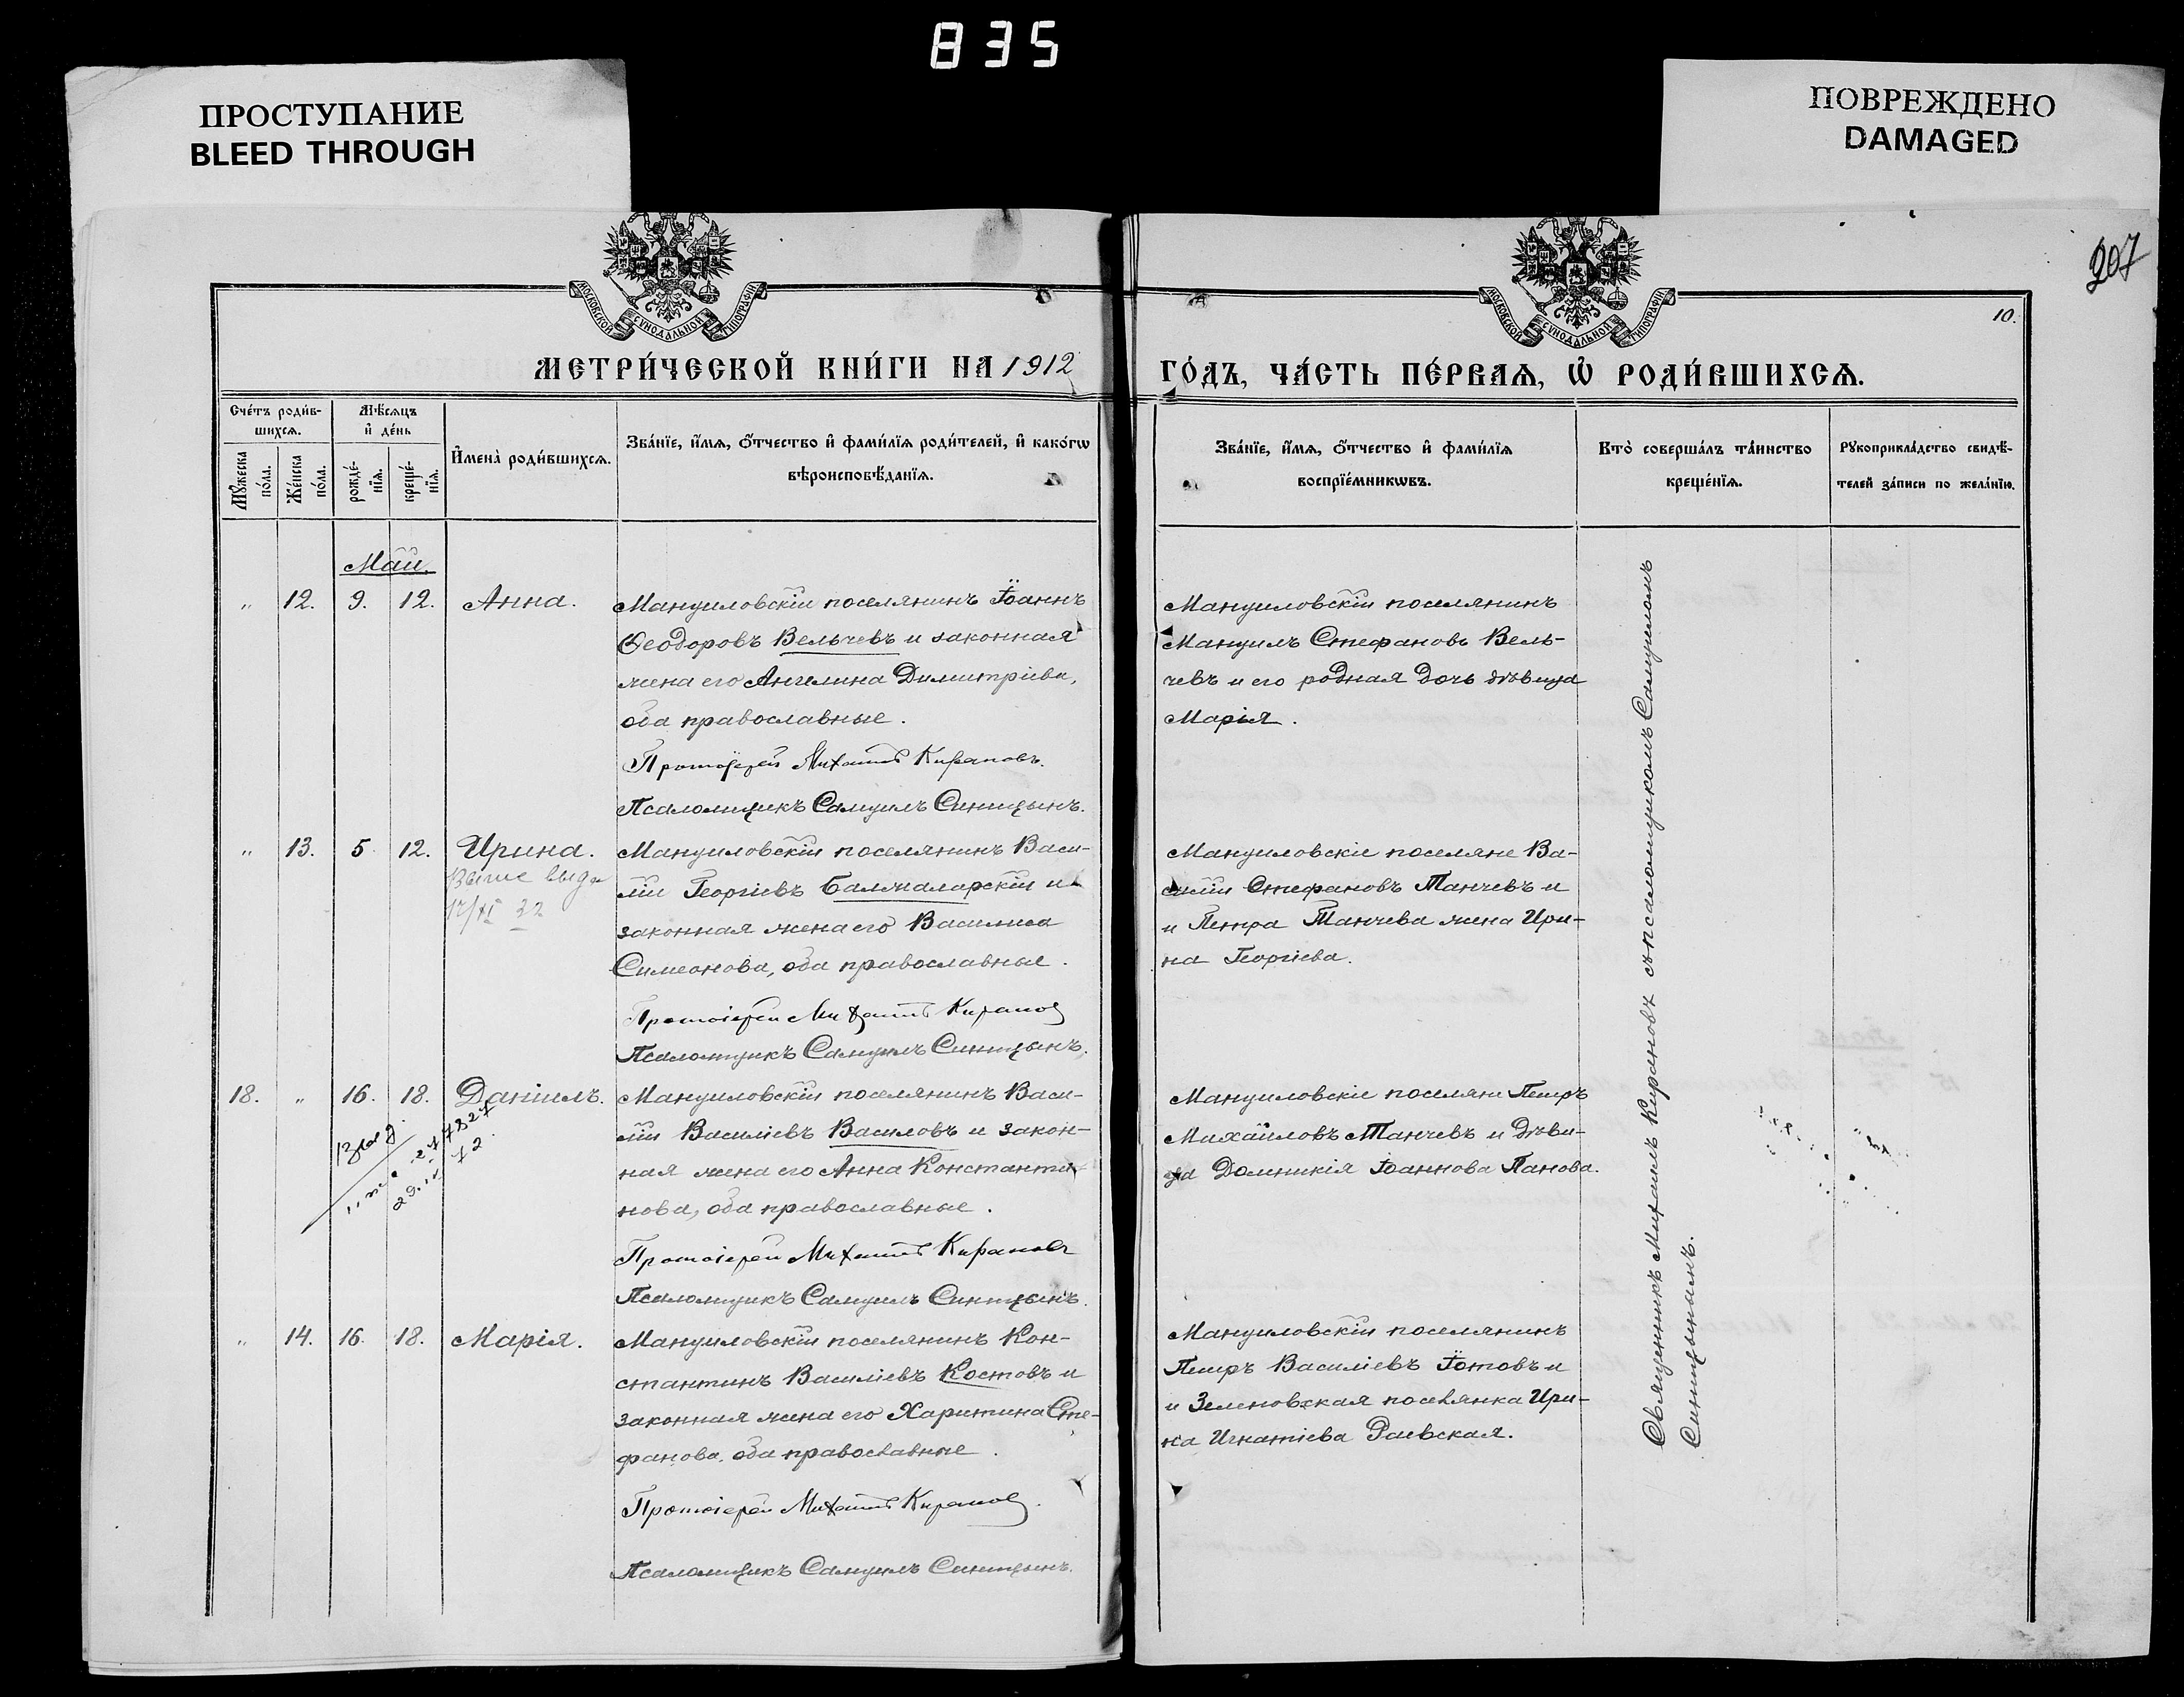 835
ПРОСТУПАНИЕ
BLEED THROUGH
ПОВРЕЖДЕНО
DAMAGED
207
10.
МОСКОВСКОЙ СУНОДАЛЬНОЙ ТИПОГРАФІИ
МОСКОВСКОЙ СУНОДАЛЬНОЙ ТИПОГРАФІИ
МЕТРИ́ЧЕСКОЙ КНИ́ГИ НА 1912
ГО́ДЪ, ЧА́СТЬ ПЕ́РВАѦ, Ѡ҆ РОДИ́ВШИХСѦ.
Сче́тъ роди́в-
шихсѧ.
Мѣ́сѧцъ
и҆ де́нь
Мꙋ́жеска по́ла.
Же́нска по́ла.
рожде́-
нїѧ.
креще́-
нїѧ.
И҆мена̀ роди́вшихсѧ.
Зва́нїе, и҆́мѧ, ѻ҆́тчество и҆ фами́лїѧ роди́телей, и҆ како́гѡ
вѣроисповѣ́данїѧ.
Зва́нїе, и҆́мѧ, ѻ҆́тчество и҆ фами́лїѧ
воспрїе́мникѡвъ.
Кто̀ соверша́лъ та́инство
креще́нїѧ.
Рꙋкоприкла́дство свидѣ́-
телей за́писи по жела́нїю.
Май.
" 12. 9. 12. Анна.
Мануиловскій поселянинъ Іоаннъ
Ѳеодоровъ Вельчевъ и законная
жена его Ангелина Димитріева,
оба православные.
Протоіерей Михаилъ Кирановъ.
Псаломщикъ Самуилъ Синицынъ.
Мануиловскій поселянинъ
Мануилъ Стефановъ Вель-
чевъ и его родная дочь дѣвица
Марія.
" 13. 5 12. Ирина.
Мануиловскій поселянинъ Васи-
лій Георгіевъ Балжаларскій и
законная жена его Василиса
Симеонова, оба православные.
Протоіерей Михаилъ Киранов
Псаломщикъ Самуилъ Синицынъ.
Мануиловскіе поселяне Ва-
силій Стефановъ Танчевъ и
и Петра Танчева жена Ири-
на Георгіева.
18. " 16. 18. Даніилъ.
Мануиловскій поселянинъ Васи-
лій Василіевъ Василовъ и закон-
ная жена его Анна Константи-
нова, оба православные.
Протоіерей Михаилъ Кирановъ
Псаломщикъ Самуилъ Синицынъ.
Мануиловскіе поселяне Петръ
Михайловъ Танчевъ и дѣви-
ца Домникія Іоаннова Панова.
" 14. 16. 18. Марія.
Мануиловскій поселянинъ Кон-
стантинъ Василіевъ Костовъ и
законная жена его Харитина Сте-
фанова, оба православные.
Протоіерей Михаилъ Киранов.
Псаломщикъ Самуилъ Синицынъ.
Мануиловскій поселянинъ
Петръ Василіевъ Іотовъ и
и Зеленовская поселянка Ири-
на Игнатіева Раевская.
Священникъ Михаилъ Кирановъ съ псаломщикомъ Самуиломъ
Синицынымъ.